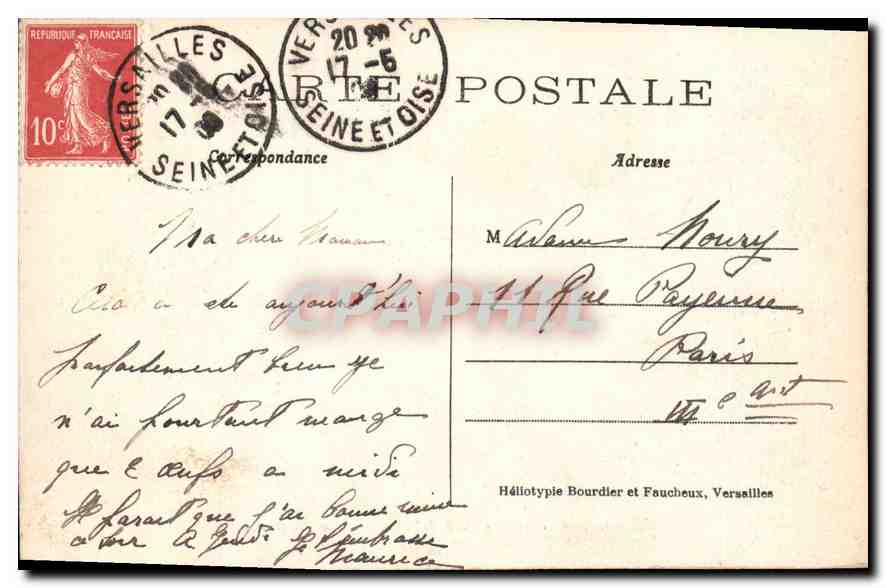 REPUBLIQUE FRANÇAISE
10c
VERSAILLES
17
09
SEINE ET OISE
VERSAILLES
20
17 -5
09
SEINE ET OISE
CARTE POSTALE
Correspondance
Adresse
Ma chere Maman
Cela a ete aujourd'hui
parfaitement bien je
n'ai pourtant mangé
que 2 œufs a midi
Il parait que j'ai bonne mine
ce soir A Jeudi Je t'embrasse
Maurice
Madame Noury
11 Rue Payenne
Paris
III e arrt
CPAPHIL
Héliotypie Bourdier et Faucheux, Versailles